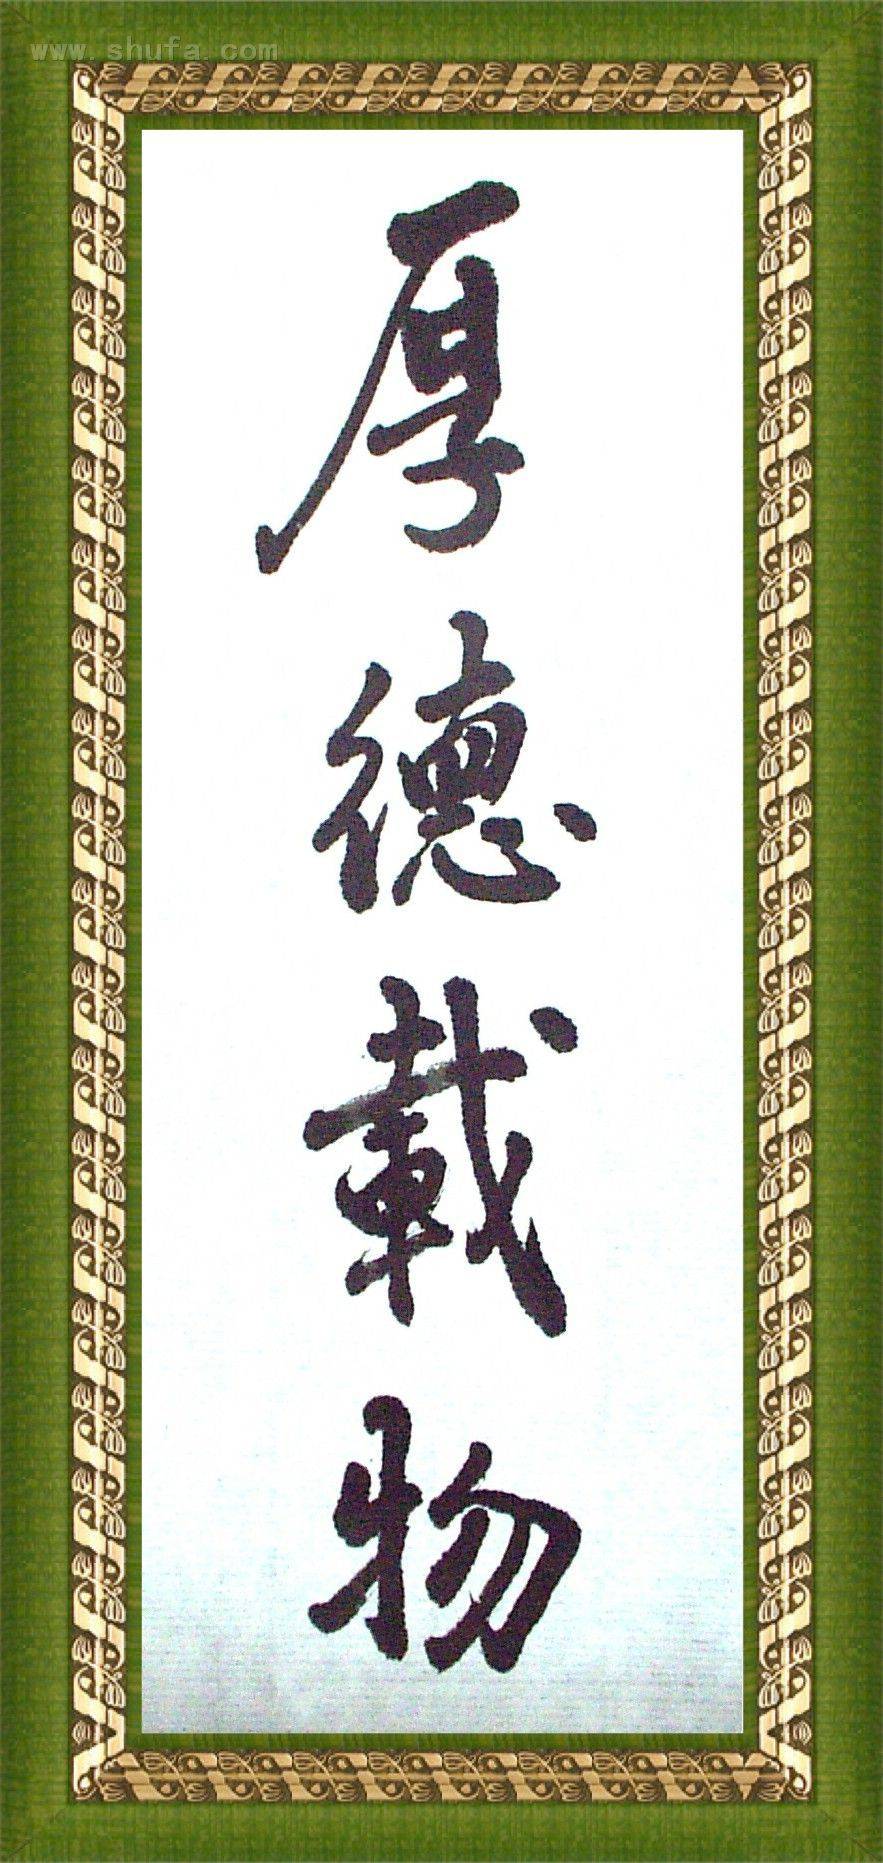 www.shufa.com
厚德載物